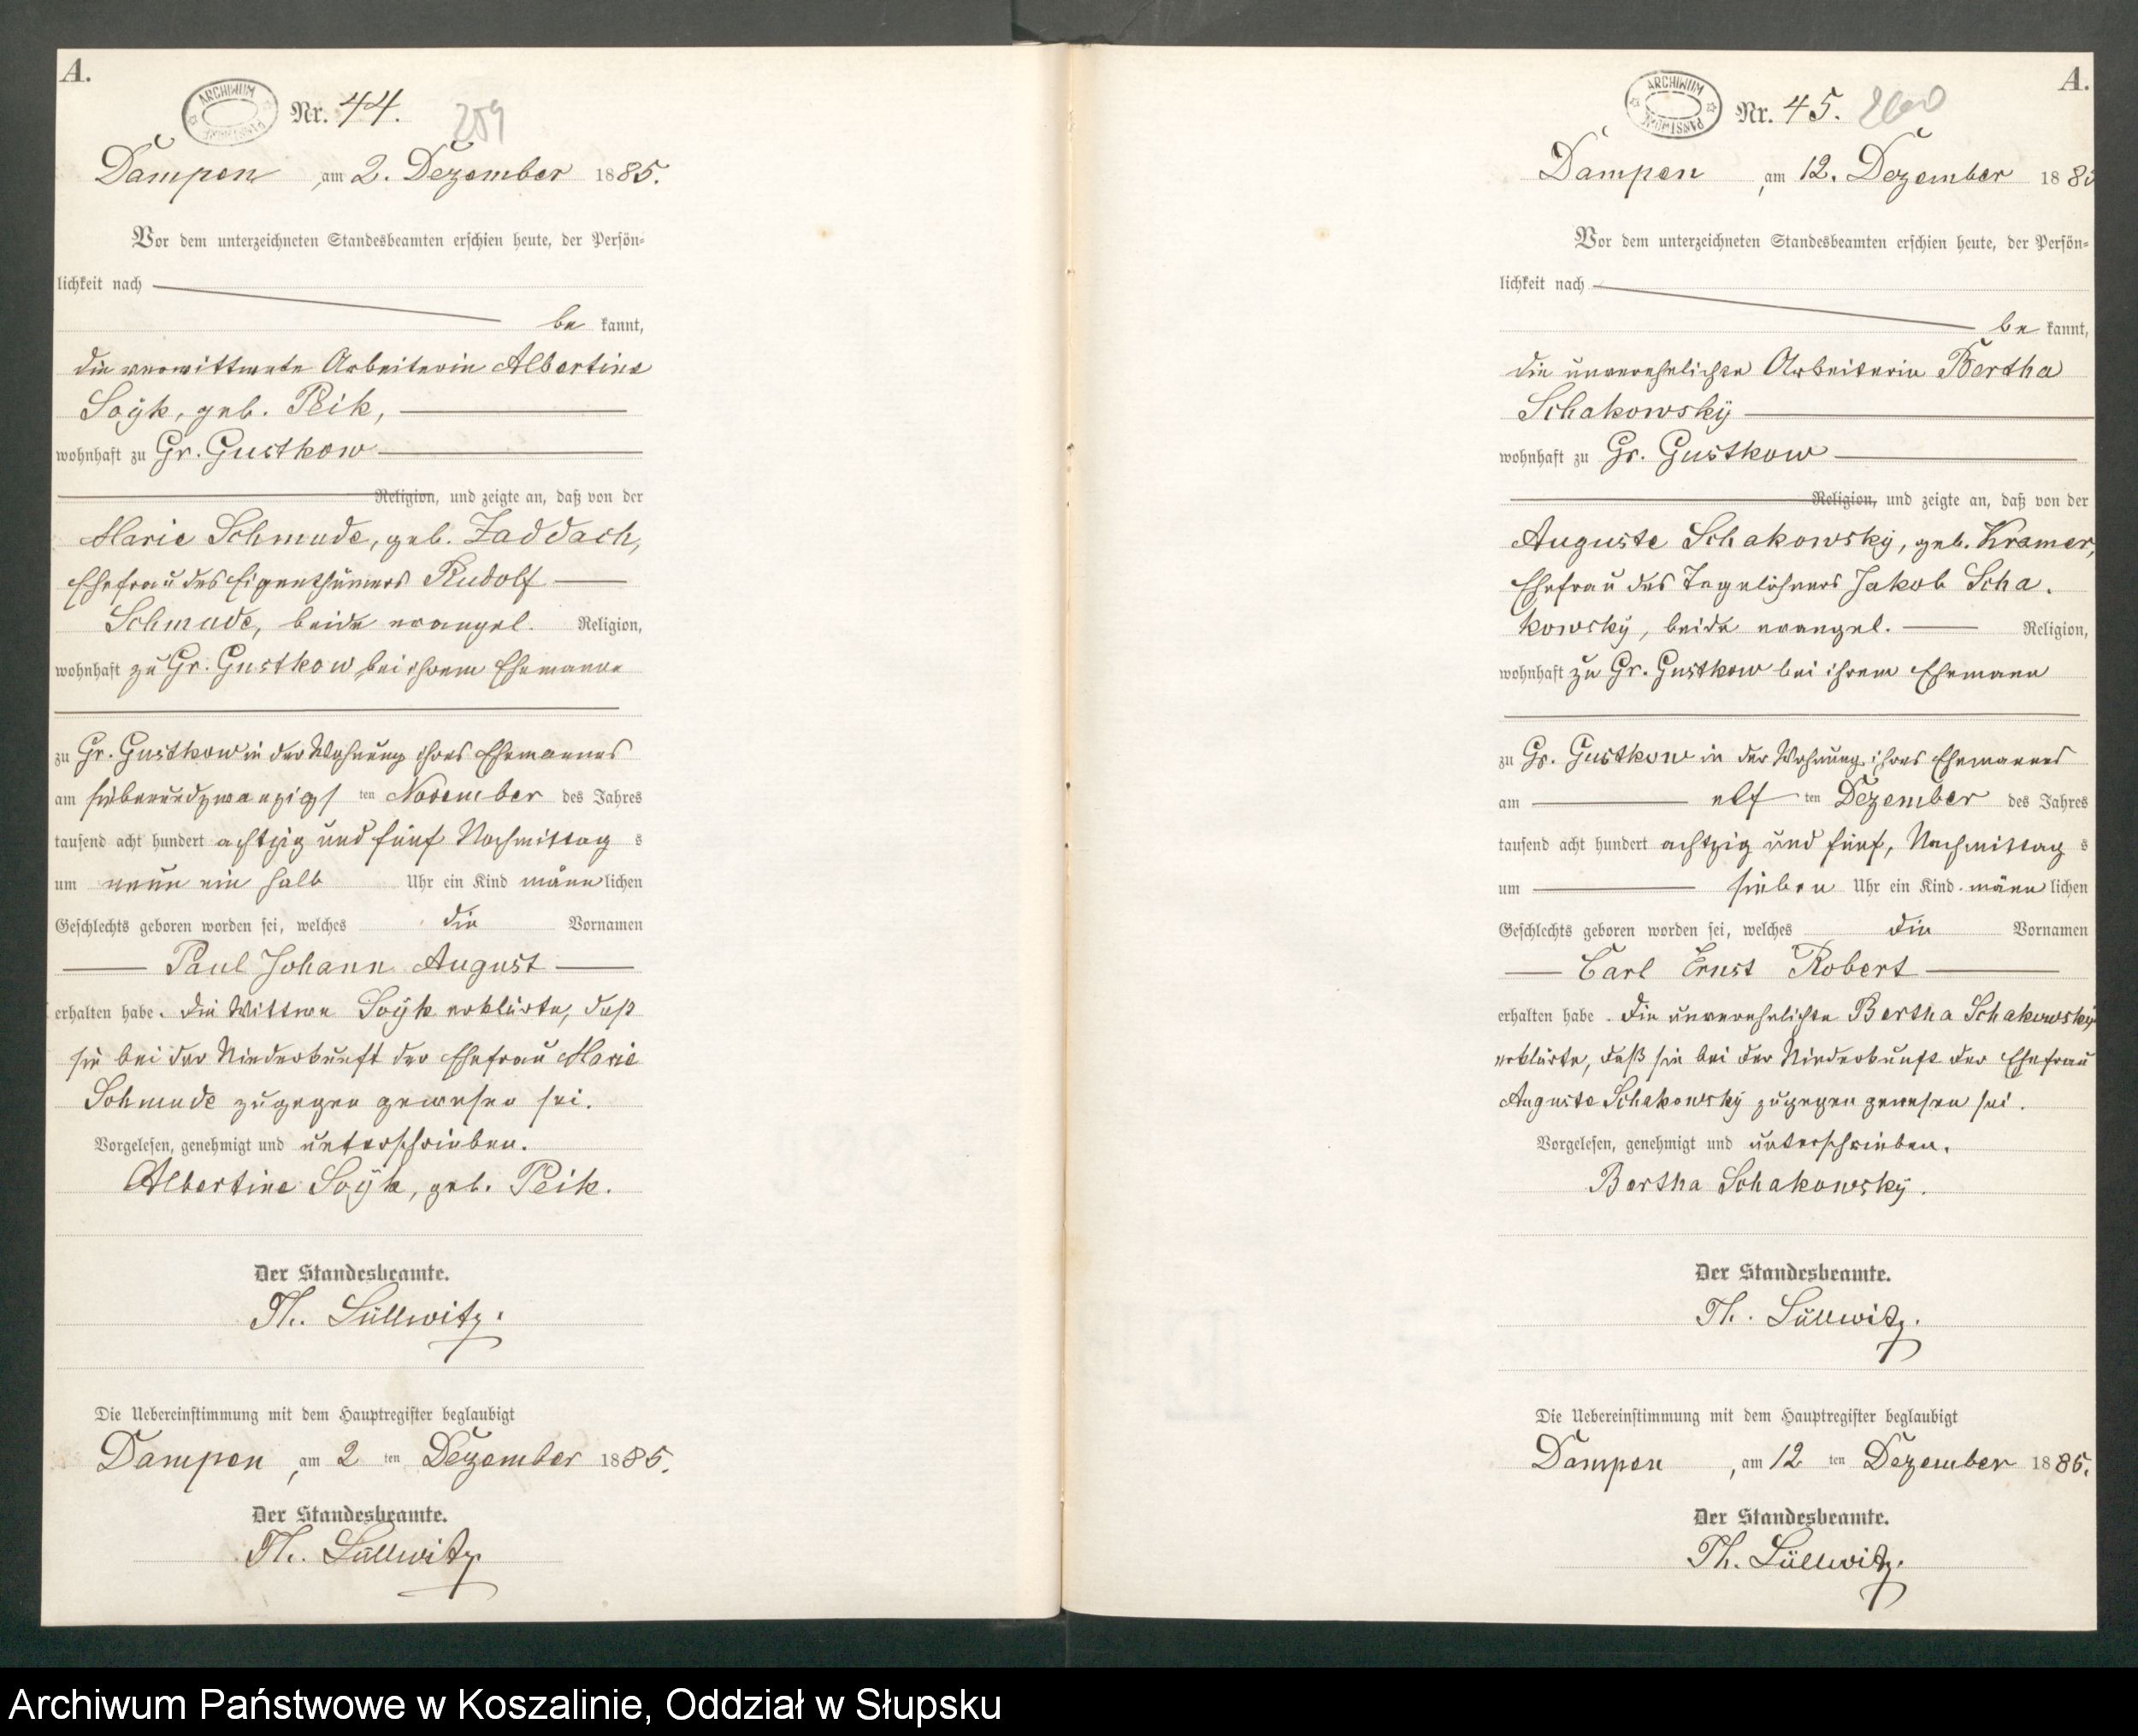 A.
ARCHIWUM PAŃSTWOWE
Nr. 44.
259
Dampen, am 2. Dezember 1885.
Vor dem unterzeichneten Standesbeamten erschien heute, der Persön=
lichkeit nach
be kannt,
die verwittwete Arbeiterin Albertine
Soyk, geb. Peik,
wohnhaft zu Gr. Gustkow
Religion, und zeigte an, daß von der
Marie Schmude, geb. Zaddach,
Ehefrau des Eigenthümers Rudolf
Schmude, beide evangel. Religion,
wohnhaft zu Gr. Gustkow bei ihrem Ehemanne
zu Gr. Gustkow in der Wohnung ihres Ehemannes
am siebenundzwanzigs ten November des Jahres
tausend acht hundert achtzig und fünf Nachmittag s
um neun ein halb Uhr ein Kind männ lichen
Geschlechts geboren worden sei, welches die Vornamen
Paul Johann August
erhalten habe. Die Wittwe Soyk erklärte, daß
sie bei der Niederkunft der Ehefrau Marie
Schmude zugegen gewesen sei.
Vorgelesen, genehmigt und unterschrieben.
Albertine Soyk, geb. Peik.
Der Standesbeamte.
Th. Lüllwitz.
Die Uebereinstimmung mit dem Hauptregister beglaubigt
Dampen, am 2 ten Dezember 1885.
Der Standesbeamte.
Th. Lüllwitz.
A.
ARCHIWUM PAŃSTWOWE
Nr. 45.
260
Dampen, am 12. Dezember 188
Vor dem unterzeichneten Standesbeamten erschien heute, der Persön=
lichkeit nach
be kannt,
die unverehelichte Arbeiterin Bertha
Schakowsky
wohnhaft zu Gr. Gustkow
Religion, und zeigte an, daß von der
Auguste Schakowsky, geb. Kramer,
Ehefrau des Tagelöhners Jakob Scha.
kowsky, beide evangel. Religion,
wohnhaft zu Gr. Gustkow bei ihrem Ehemann
zu Gr. Gustkow in der Wohnung ihres Ehemannes
am elf ten Dezember des Jahres
tausend acht hundert achtzig und fünf, Nachmittag s
um sieben Uhr ein Kind männ lichen
Geschlechts geboren worden sei, welches die Vornamen
Carl Ernst Robert
erhalten habe. Die unverehelichte Bertha Schakowsky
erklärte, daß sie bei der Niederkunft der Ehefrau
Auguste Schakowsky zugegen gewesen sei.
Vorgelesen, genehmigt und unterschrieben.
Bertha Schakowsky.
Der Standesbeamte.
Th. Lüllwitz.
Die Uebereinstimmung mit dem Hauptregister beglaubigt
Dampen, am 12 ten Dezember 1885.
Der Standesbeamte.
Th. Lüllwitz.
Archiwum Państwowe w Koszalinie, Oddział w Słupsku